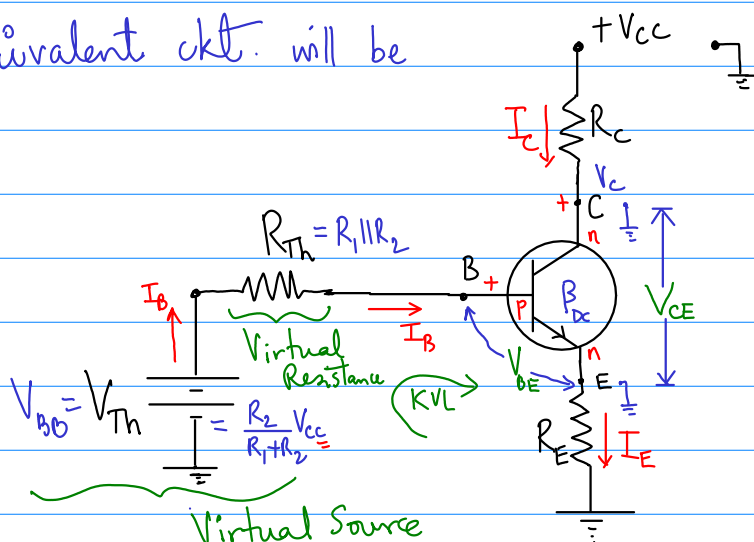 uivalent ckt. will be
+VCC
IC
RC
VC
+ C
n
RTh = R1||R2
B +
P
βDC
VCE
IB
IB
Virtual
Resistance
VBE
n
E
KVL
VBB = VTh = R2/(R1+R2) VCC
RE
IE
Virtual Source